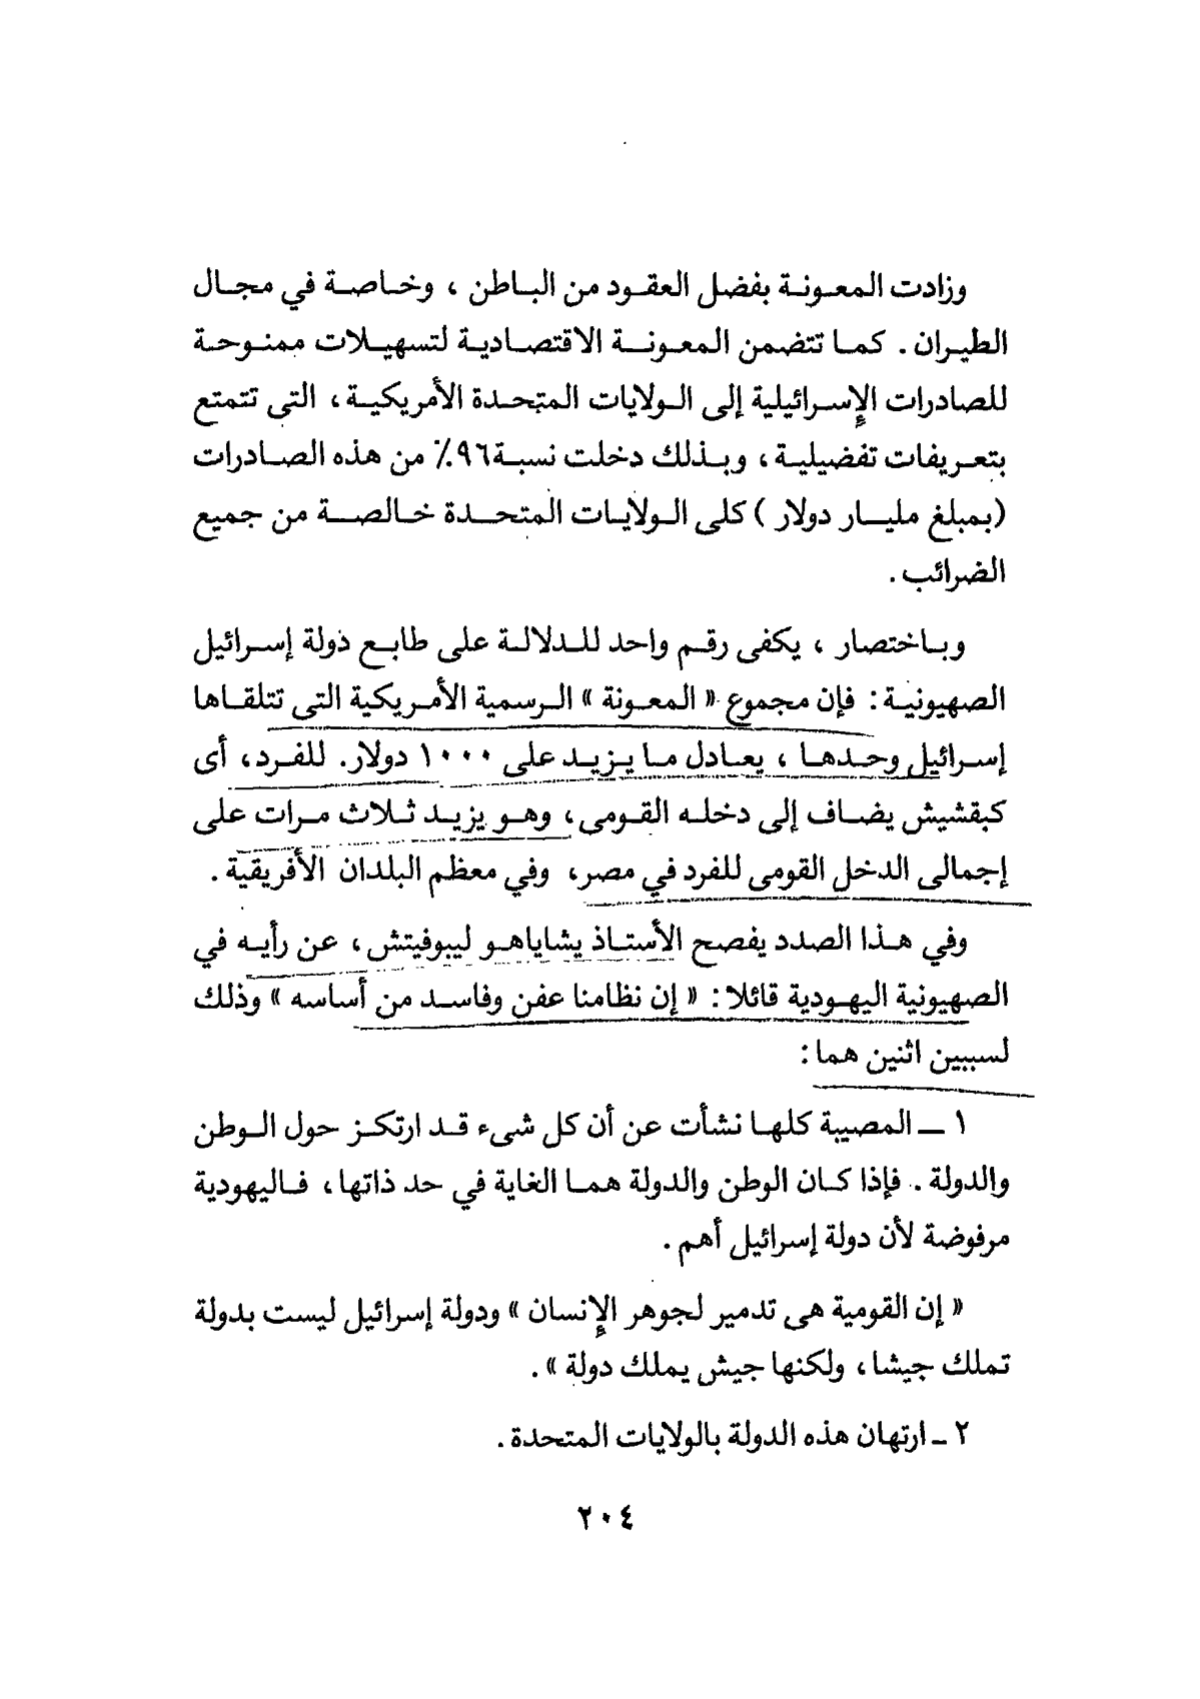 وزادت المعونة بفضل العقود من الباطن ، وخاصة في مجال
الطيران . كما تتضمن المعونة الاقتصادية لتسهيلات ممنوحة
للصادرات الإسرائيلية إلى الولايات المتحدة الأمريكية ، التى تتمتع
بتعريفات تفضيلية ، وبذلك دخلت نسبة ٩٦٪ من هذه الصادرات
(بمبلغ مليار دولار ) كلى الولايات المتحدة خالصة من جميع
الضرائب .
وباختصار ، يكفى رقم واحد للدلالة على طابع دولة إسرائيل
الصهيونية : فإن مجموع « المعونة » الرسمية الأمريكية التى تتلقاها
إسرائيل وحدها ، يعادل ما يزيد على ١٠٠٠ دولار . للفرد ، أى
كبقشيش يضاف إلى دخله القومى ، وهو يزيد ثلاث مرات على
إجمالى الدخل القومى للفرد في مصر ، وفي معظم البلدان الأفريقية .
وفي هذا الصدد يفصح الأستاذ يشاياهو ليبوفيتش ، عن رأيه في
الصهيونية اليهودية قائلا : « إن نظامنا عفن وفاسد من أساسه » وذلك
لسببين اثنين هما :
١ ــ المصيبة كلها نشأت عن أن كل شىء قد ارتكز حول الوطن
والدولة . فإذا كان الوطن والدولة هما الغاية في حد ذاتها ، فاليهودية
مرفوضة لأن دولة إسرائيل أهم .
« إن القومية هى تدمير لجوهر الإنسان » ودولة إسرائيل ليست بدولة
تملك جيشا ، ولكنها جيش يملك دولة » .
٢ ــ ارتهان هذه الدولة بالولايات المتحدة .
٢٠٤